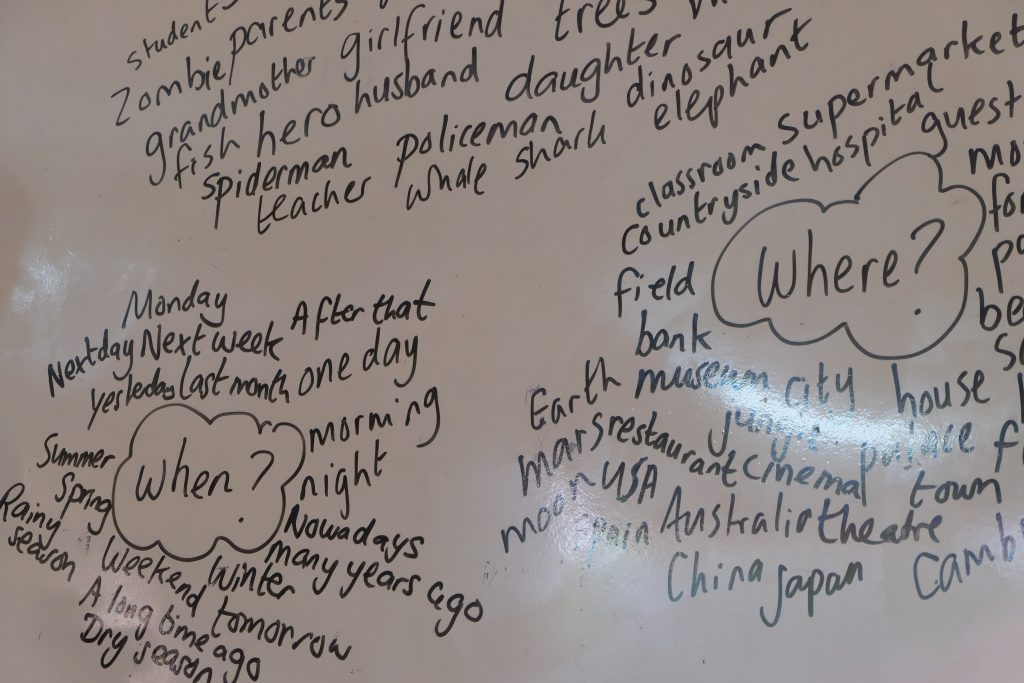 students
zombie parents
grandmother girlfriend trees
fish hero husband daughter dinosaur
spiderman policeman elephant
teacher whale shark
classroom supermarket
countryside hospital guest
Where?
field
bank
Earth museum city house
mars restaurant jungle palace
moon USA cinema town
Spain Australia theatre
China Japan Camb
Monday
Next day Next week After that
yesteday last month one day
When?
morming
night
Summer
Spring
Rainy season
Nowadays
many years ago
Weekend Winter
A long time ago tomorrow
Dry season